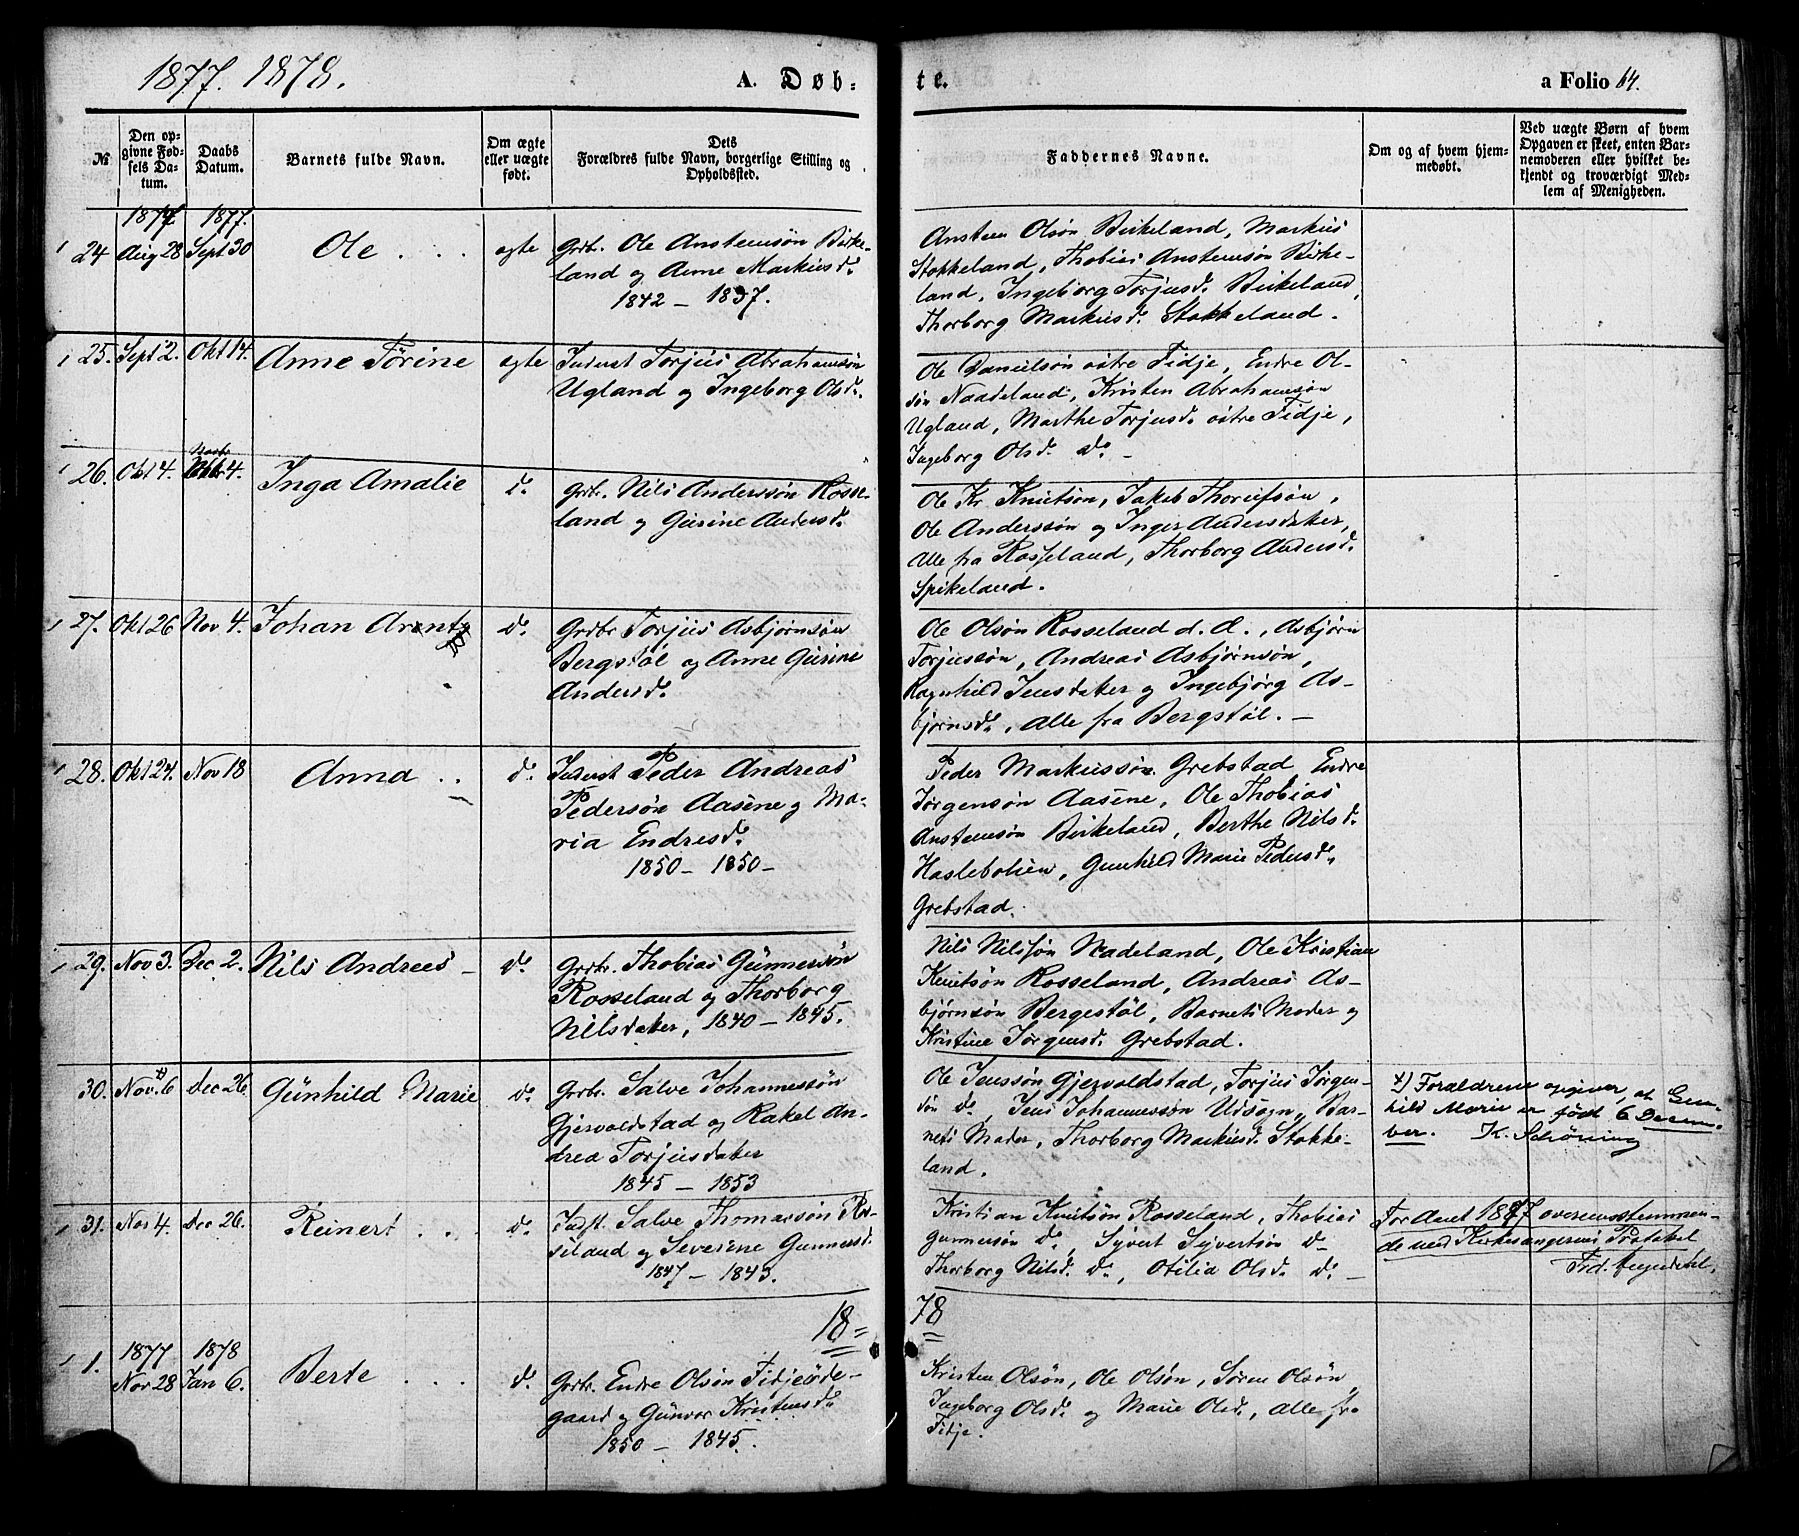 1877. 1878.
A. Døb-
te.
a Folio 64.
№
Den op-
givne Fød-
sels Da-
tum.
Daabs
Datum.
Barnets fulde Navn.
Om ægte
eller uægte
født.
Dets
Forældres fulde Navn, borgerlige Stilling og
Opholdssted.
Faddernes Navne.
Om og af hvem hjem-
medøbt.
Ved uægte Børn af hvem
Opgaven er skeet, enten Bar-
nemoderen eller hvilket be-
kjendt og troværdigt Med-
lem af Menigheden.
1877 1877.
24 Aug 28 Sept 30 Ole . . . egte Grdbr. Ole Anstensøn Birke-
land og Anne Markusd.
1842 - 1837.
Ansten Olsøn Birkeland, Markus
Stokkeland, Thobias Anstensøn Birke-
land, Ingeborg Torjusd. Birkeland,
Thorborg Markusd. Stokkeland.
25. Sept 2. Okt 14. Anne Törine egte Inderst Torjus Abrahamsøn
Ugland og Ingeborg Olsd.
Ole Danielsøn østre Fidje, Endre Ol-
søn Naadeland, Kristen Abrahamsøn
Ugland, Marthe Torjusd. østre Fidje,
Ingeborg Olsd. do. -
26. Okt 4. Novbr. 4. Inga Amalie do. Grbr. Nils Anderssøn Rosse-
land og Gurine Andersd.
Ole Kr Knutsøn, Jakob
Ole Anderssøn og Inger Andersdater,
Alle fra Rosseland, Thorborg Andersd.
Spikeland.
27. Okt 26 Nov 4. Johan Arentz do. Grdbr Torjus Asbjørnsøn
Bergstøl og Anne Gurine
Andersd.
Ole Olsøn Rosseland d. æ., Asbjørn
Torjussøn, Andreas Asbjørnsøn,
Ragnhild Jensdater og Ingebjørg As-
bjørnsd., Alle fra Bergstøl. -
28. Okt 24. Nov 18 Anna . . do. Inderst Peder Andreas
Pedersøn Aasene og Ma-
ria Endresd.
1850 - 1850 -
Peder Markussøn Grebstad Endre
Jørgensøn Aasene, Ole Thobias
Anstensøn Birkeland, Berthe Nilsd.
Haslebolien, Gunhild Marie Pedersd.
Grebstad.
29. Nov 3. Dec 2. Nils Andreas - do. Grbr. Thobias Gunnersøn
Rosseland og Thorborg
Nilsdater, 1840 - 1845.
Nils Nilssøn Nadeland, Ole Kristian
Knutsøn Rosseland, Andreas As-
bjørnsøn Bergestøl, Barnets Moder og
Kristine Jørgensd. Grebstad.
30. Nov. 6 Dec 26. Gunhild Marie do. Grbr. Salve Johannessøn
Gjervoldstad og Rakel An-
drea Torjusdater
1845 - 1853
Ole Jenssøn Gjervoldstad, Torjus Jørgen-
søn do., Jens Johannessøn Udsogn, Bar-
nets Moder, Thorborg Markusd. Stokke-
land.
x) Forældrene opgiver, at Gun-
hild Marie er født 6 Decem-
ber. K. Schöning
31. Nov 4. Dec 26. Reinert . . do. Indst. Salve Thomassøn Ros-
seland og Severine Gunnersd.
1847 - 1843.
Kristian Knutsøn Rosseland, Thobias
Gunnersøn do, Syvert Syvertsøn do
Thorborg Nilsd. do., Otilia Olsd. do. -
For Aaret 1877 overensstemmen-
de med Kirkesangerens Protokol
18=
78
1877 1878
1. Nov 28 Jan 6. Berte . . . do. Grbr. Endre Olsøn Fidjeøde-
gaard og Gunvor Kristensd.
1850 - 1845.
Kristen Olsøn, Ole Olsøn, Søren Olsøn
Ingeborg Olsd. og Marie Olsd., alle fra
Fidje.